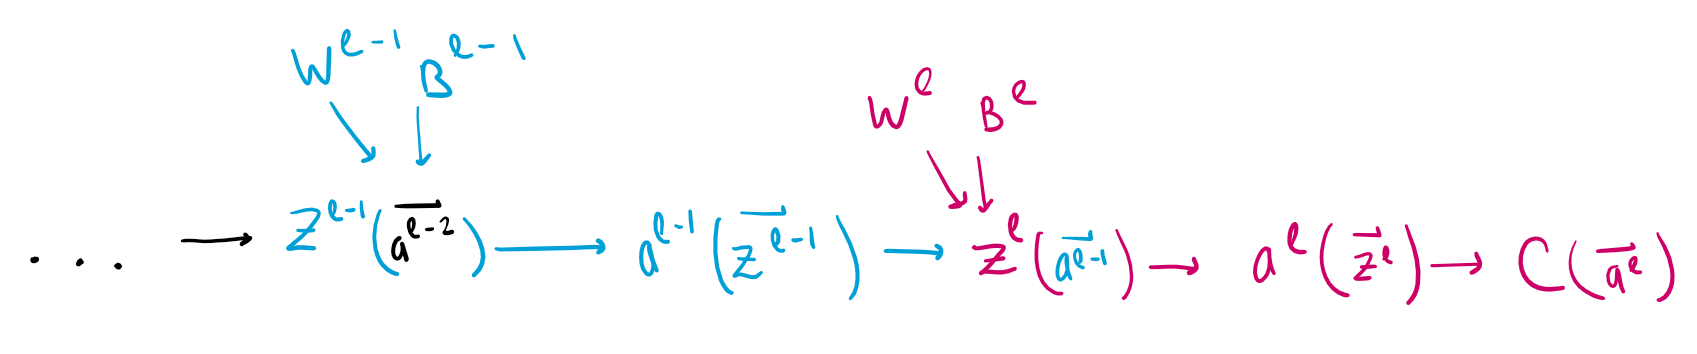 W^{l-1} B^{l-1}
W^l B^l
... → Z^{l-1}(\vec{a^{l-2}}) → a^{l-1}(\vec{z^{l-1}}) → Z^l(\vec{a^{l-1}}) → a^l(\vec{z^l}) → C(\vec{a^l})